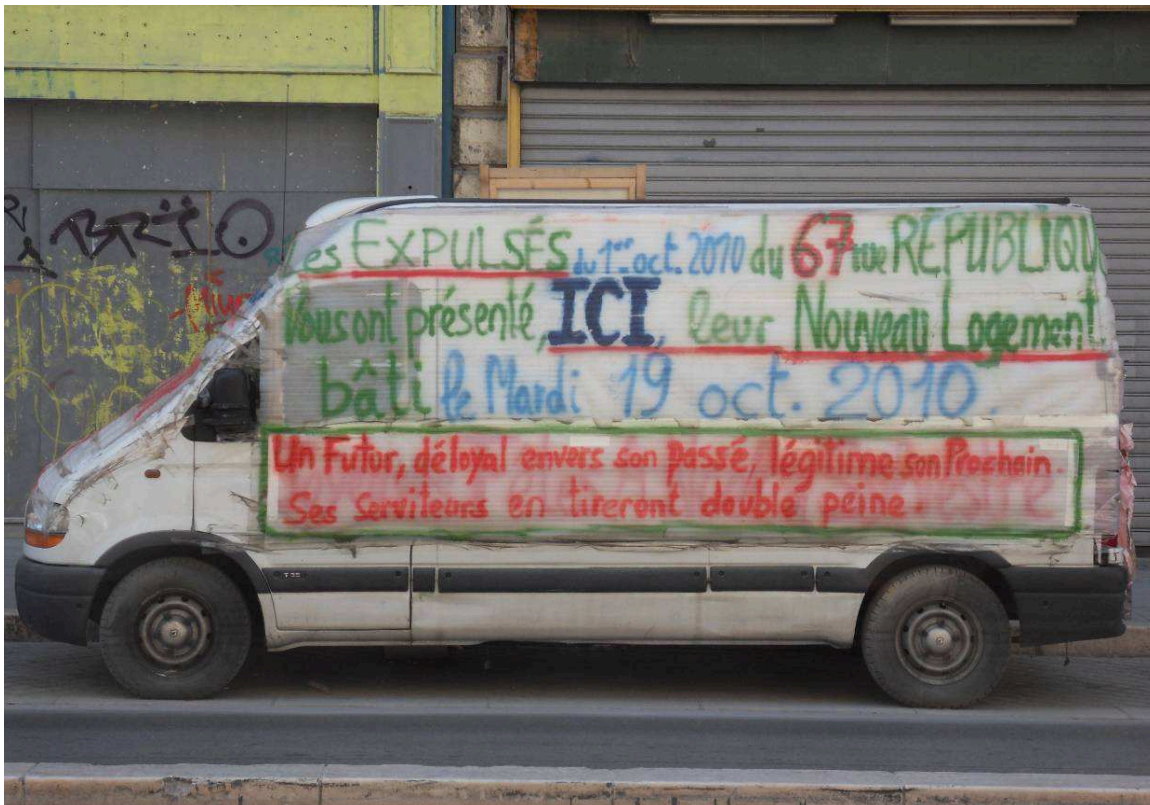 BRIO
Les EXPULSÉS du 1er oct. 2010 du 67 rue RÉPUBLIQUE
Vous ont présenté, ICI, leur Nouveau Logement
bâti le Mardi 19 oct. 2010.
Un Futur, déloyal envers son passé, légitime son Prochain.
Ses serviteurs en tireront double peine.
T35